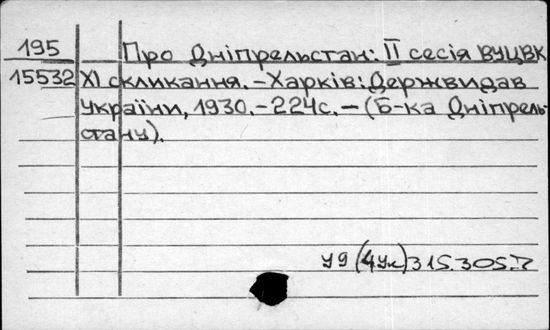 195 Про Дніпрельстан: II сесія ВУЦВК
15532 XI скликання. – Харків: Держвидав
України, 1930. – 224с. – (Б-ка Дніпрель-
стану).
У9(4Ук)315.305.7